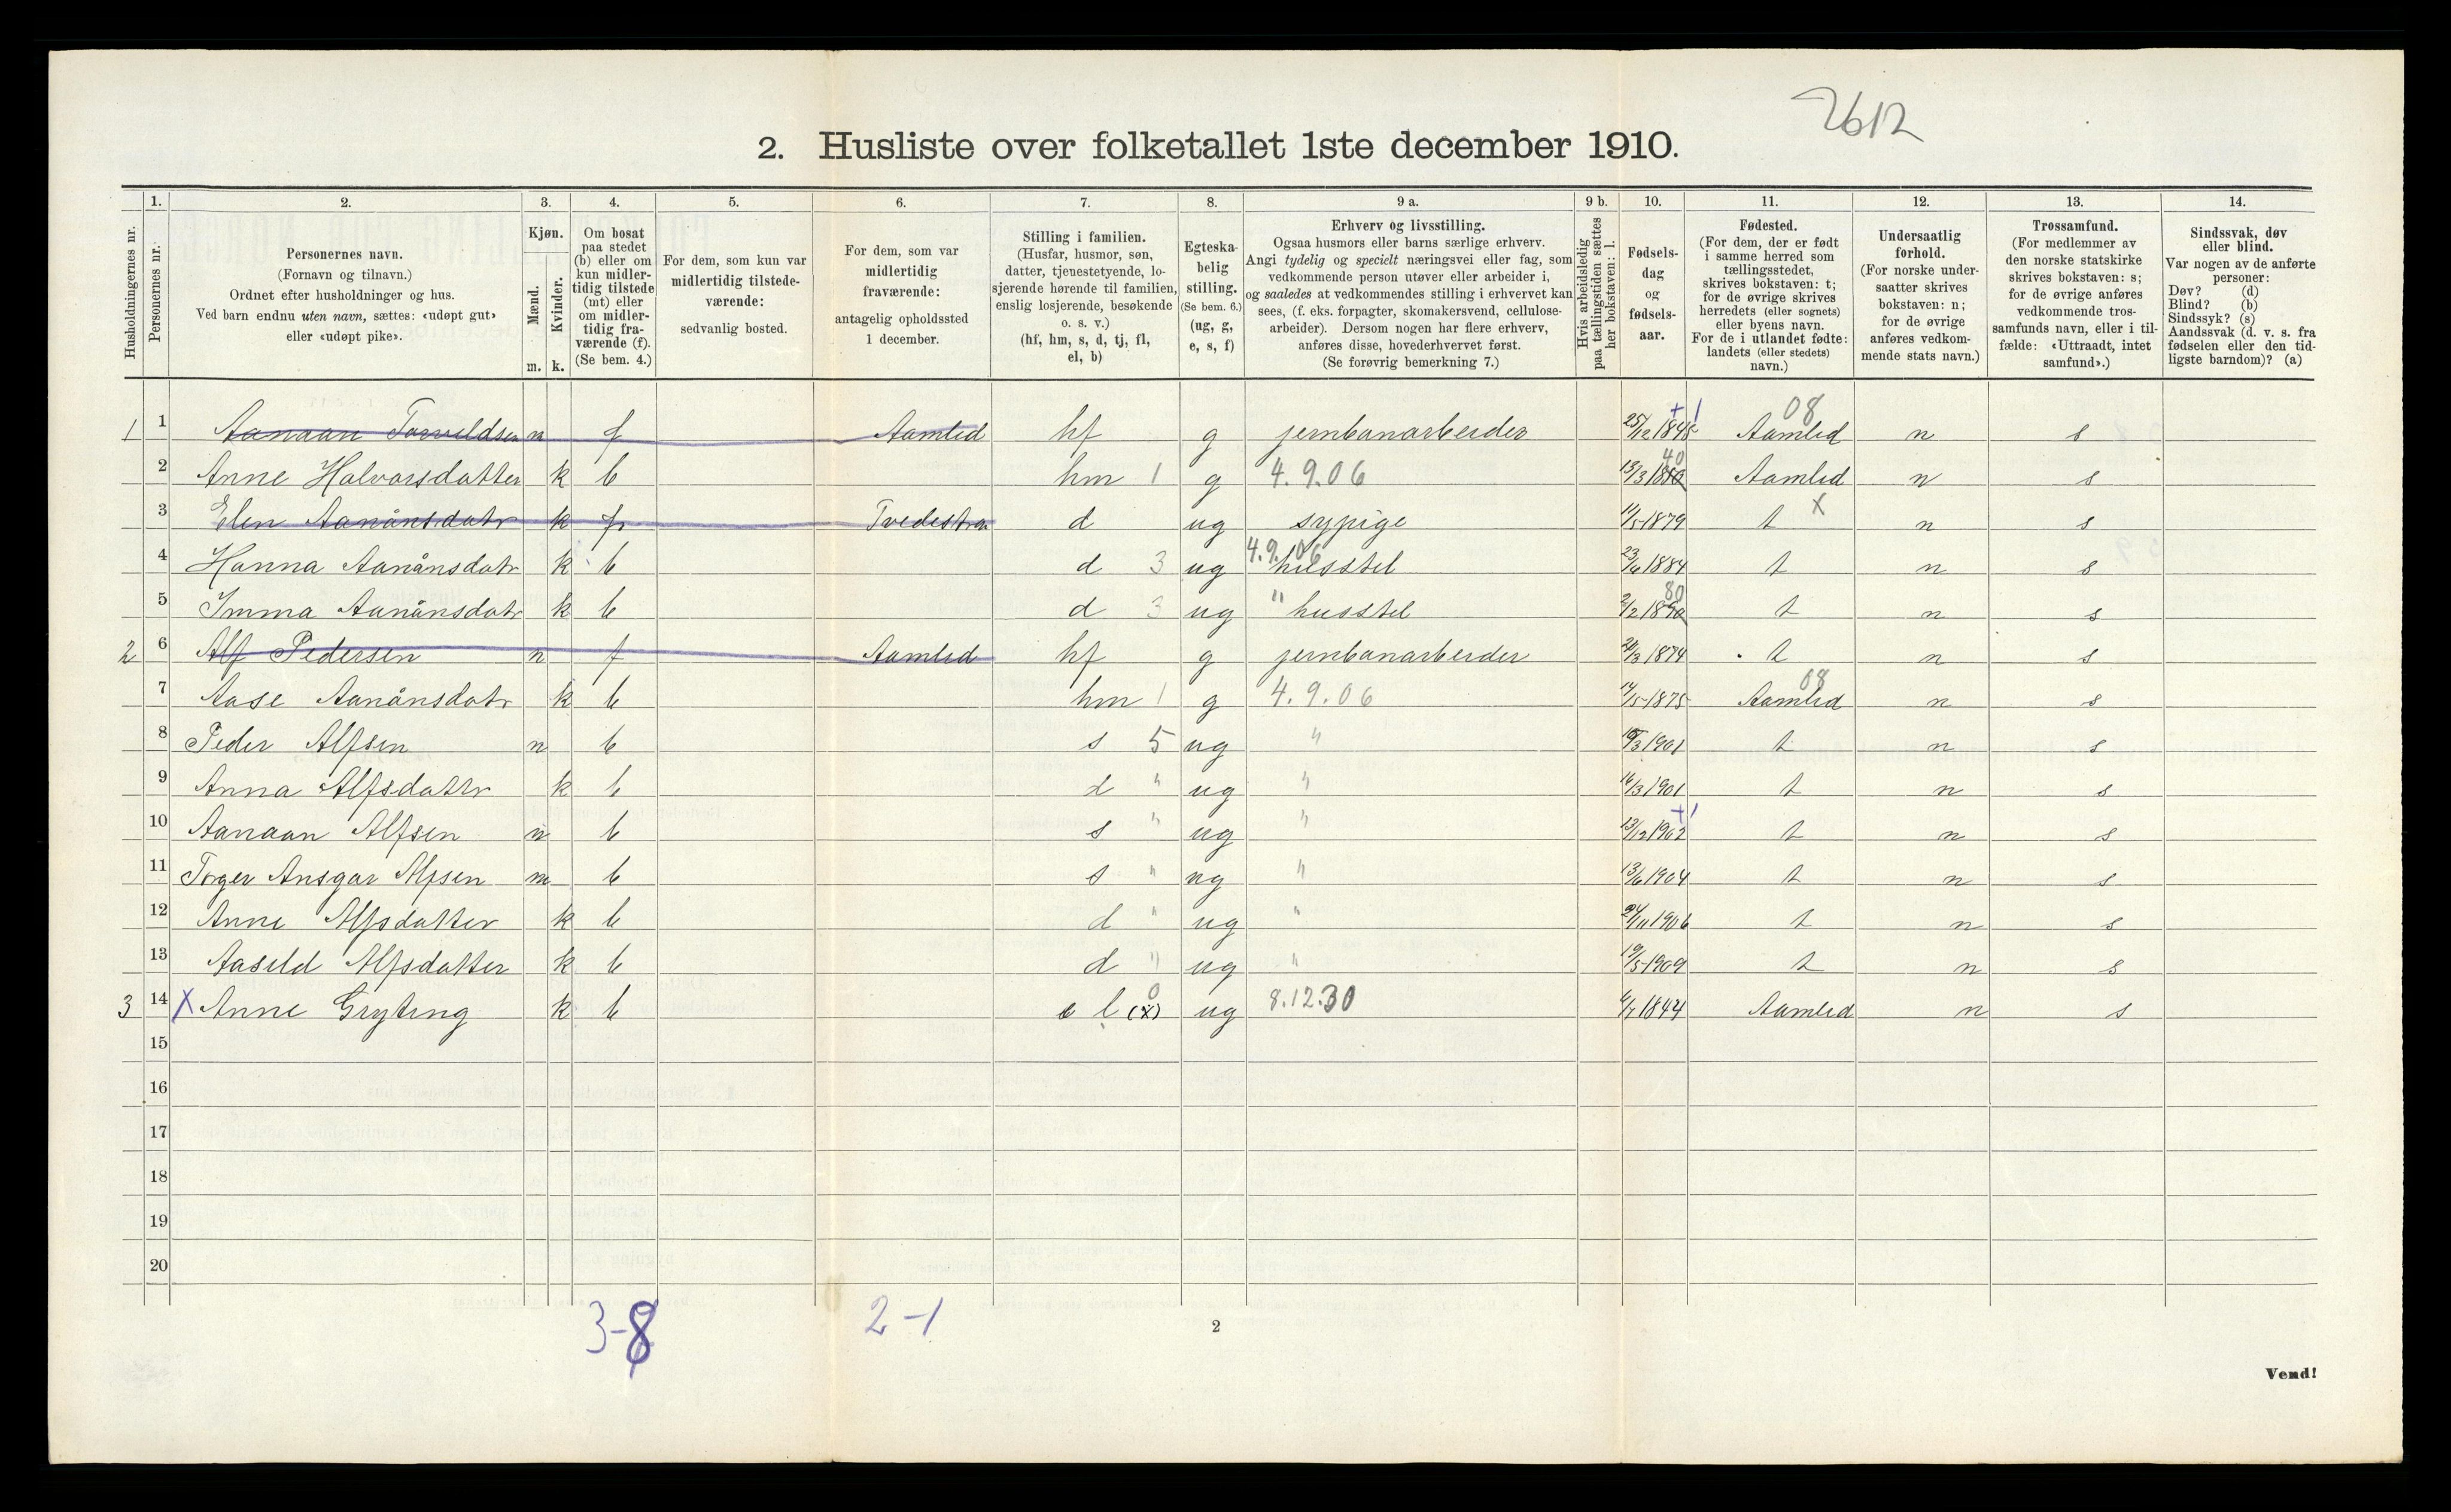 2612
2. Husliste over folketallet 1ste december 1910.
1. 2. 3. 4. 5. 6. 7. 8. 9 a. 9 b. 10. 11. 12. 13. 14.
Husholdningernes nr.
Personernes nr.
Personernes navn.
(Fornavn og tilnavn.)
Ordnet efter husholdninger og hus.
Ved barn endnu uten navn, sættes: «udøpt gut»
eller «udøpt pike».
Kjøn.
Mænd.
Kvinder.
m. k.
Om bosat
paa stedet
(b) eller om
kun midler-
tidig tilstede
(mt) eller
om midler-
tidig fra-
værende (f).
(Se bem. 4.)
For dem, som kun var
midlertidig tilstede-
værende:
sedvanlig bosted.
For dem, som var
midlertidig
fraværende:
antagelig opholdssted
1 december.
Stilling i familien.
(Husfar, husmor, søn,
datter, tjenestetyende, lo-
sjerende hørende til familien,
enslig losjerende, besøkende
o. s. v.)
(hf, hm, s, d, tj, fl,
el, b)
Egteska-
belig
stilling.
(Se bem. 6.)
(ug, g,
e, s, f)
Erhverv og livsstilling.
Ogsaa husmors eller barns særlige erhverv.
Angi tydelig og specielt næringsvei eller fag, som
vedkommende person utøver eller arbeider i,
og saaledes at vedkommendes stilling i erhvervet kan
sees, (f. eks. forpagter, skomakersvend, cellulose-
arbeider). Dersom nogen har flere erhverv,
anføres disse, hovederhvervet først.
(Se forøvrig bemerkning 7.)
Hvis arbeidsledig
paa tællingstiden sættes
her bokstaven: l.
Fødsels-
dag
og
fødsels-
aar.
Fødested.
(For dem, der er født
i samme herred som
tællingsstedet,
skrives bokstaven: t;
for de øvrige skrives
herredets (eller sognets)
eller byens navn.
For de i utlandet fødte:
landets (eller stedets)
navn.)
Undersaatlig
forhold.
(For norske under-
saatter skrives
bokstaven: n;
for de øvrige
anføres vedkom-
mende stats navn.)
Trossamfund.
(For medlemmer av
den norske statskirke
skrives bokstaven: s;
for de øvrige anføres
vedkommende tros-
samfunds navn, eller i til-
fælde: «Uttraadt, intet
samfund».)
Sindssvak, døv
eller blind.
Var nogen av de anførte
personer:
Døv? (d)
Blind? (b)
Sindssyk? (s)
Aandssvak (d. v. s. fra
fødselen eller den tid-
ligste barndom)? (a)
08
1 1 Aanaan Torvildsen m f Aamlid hf g jernbanarbeider 25/12 1848 Aamlid n s
2 Anne Halvorsdatter k b hm 1 g 4.9.06 13/3 1840 Aamlid n s
3 Elen Aanånsdatr k f Tvedestra. d ug sypige 11/5 1879 t x n s
4 Hanna Aanånsdatr k b d 3 ug 4.9.06 husstel 23/6 1884 t n s
5 Imma Aanånsdatr k b d 3 ug " husstel 2/2 1880 t n s
2 6 Alf Pedersen m f Aamlid hf g jernbanarbeider 20/3 1874 t n s
7 Aase Aanånsdatr k b hm 1 g 4.9.06 14/5 1875 Aamlid 08 n s
8 Peder Alfsen m b s 5 ug " /3 1901 t n s
9 Anna Alfsdattr k b d " ug " 14/3 1901 t n s
10 Aanaan Alfsen m b s " ug " 13/12 1902 t n s
11 Torger Ansgar Alfsen m b s " ug " 13/6 1904 t n s
12 Anne Alfsdatter k b d " ug " 24/11 1906 t n s
13 Aaseld Alfsdatter k b d " ug " 19/5 1909 t n s
3 14 X Anne Gryting k b e l (x) 0 ug 8.12.30 6/7 1844 Aamlid n s
15
16
17
18
19
20
3-8 2-1
2
Vend!